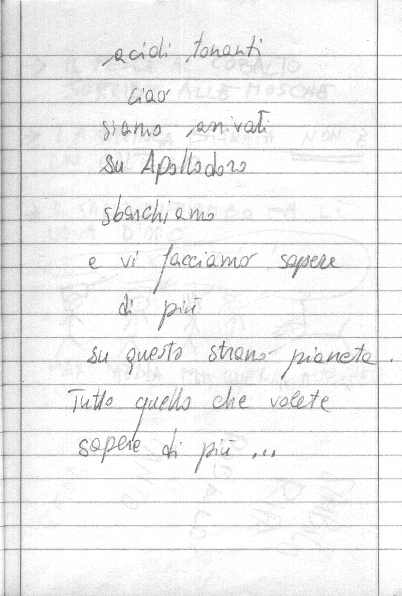 acidi tonanti
ciao
siamo arrivati
su Apollodoro
sbarchiamo
e vi facciamo sapere
di più
su questo strano pianeta.
Tutto quello che volete
sapere di più ...